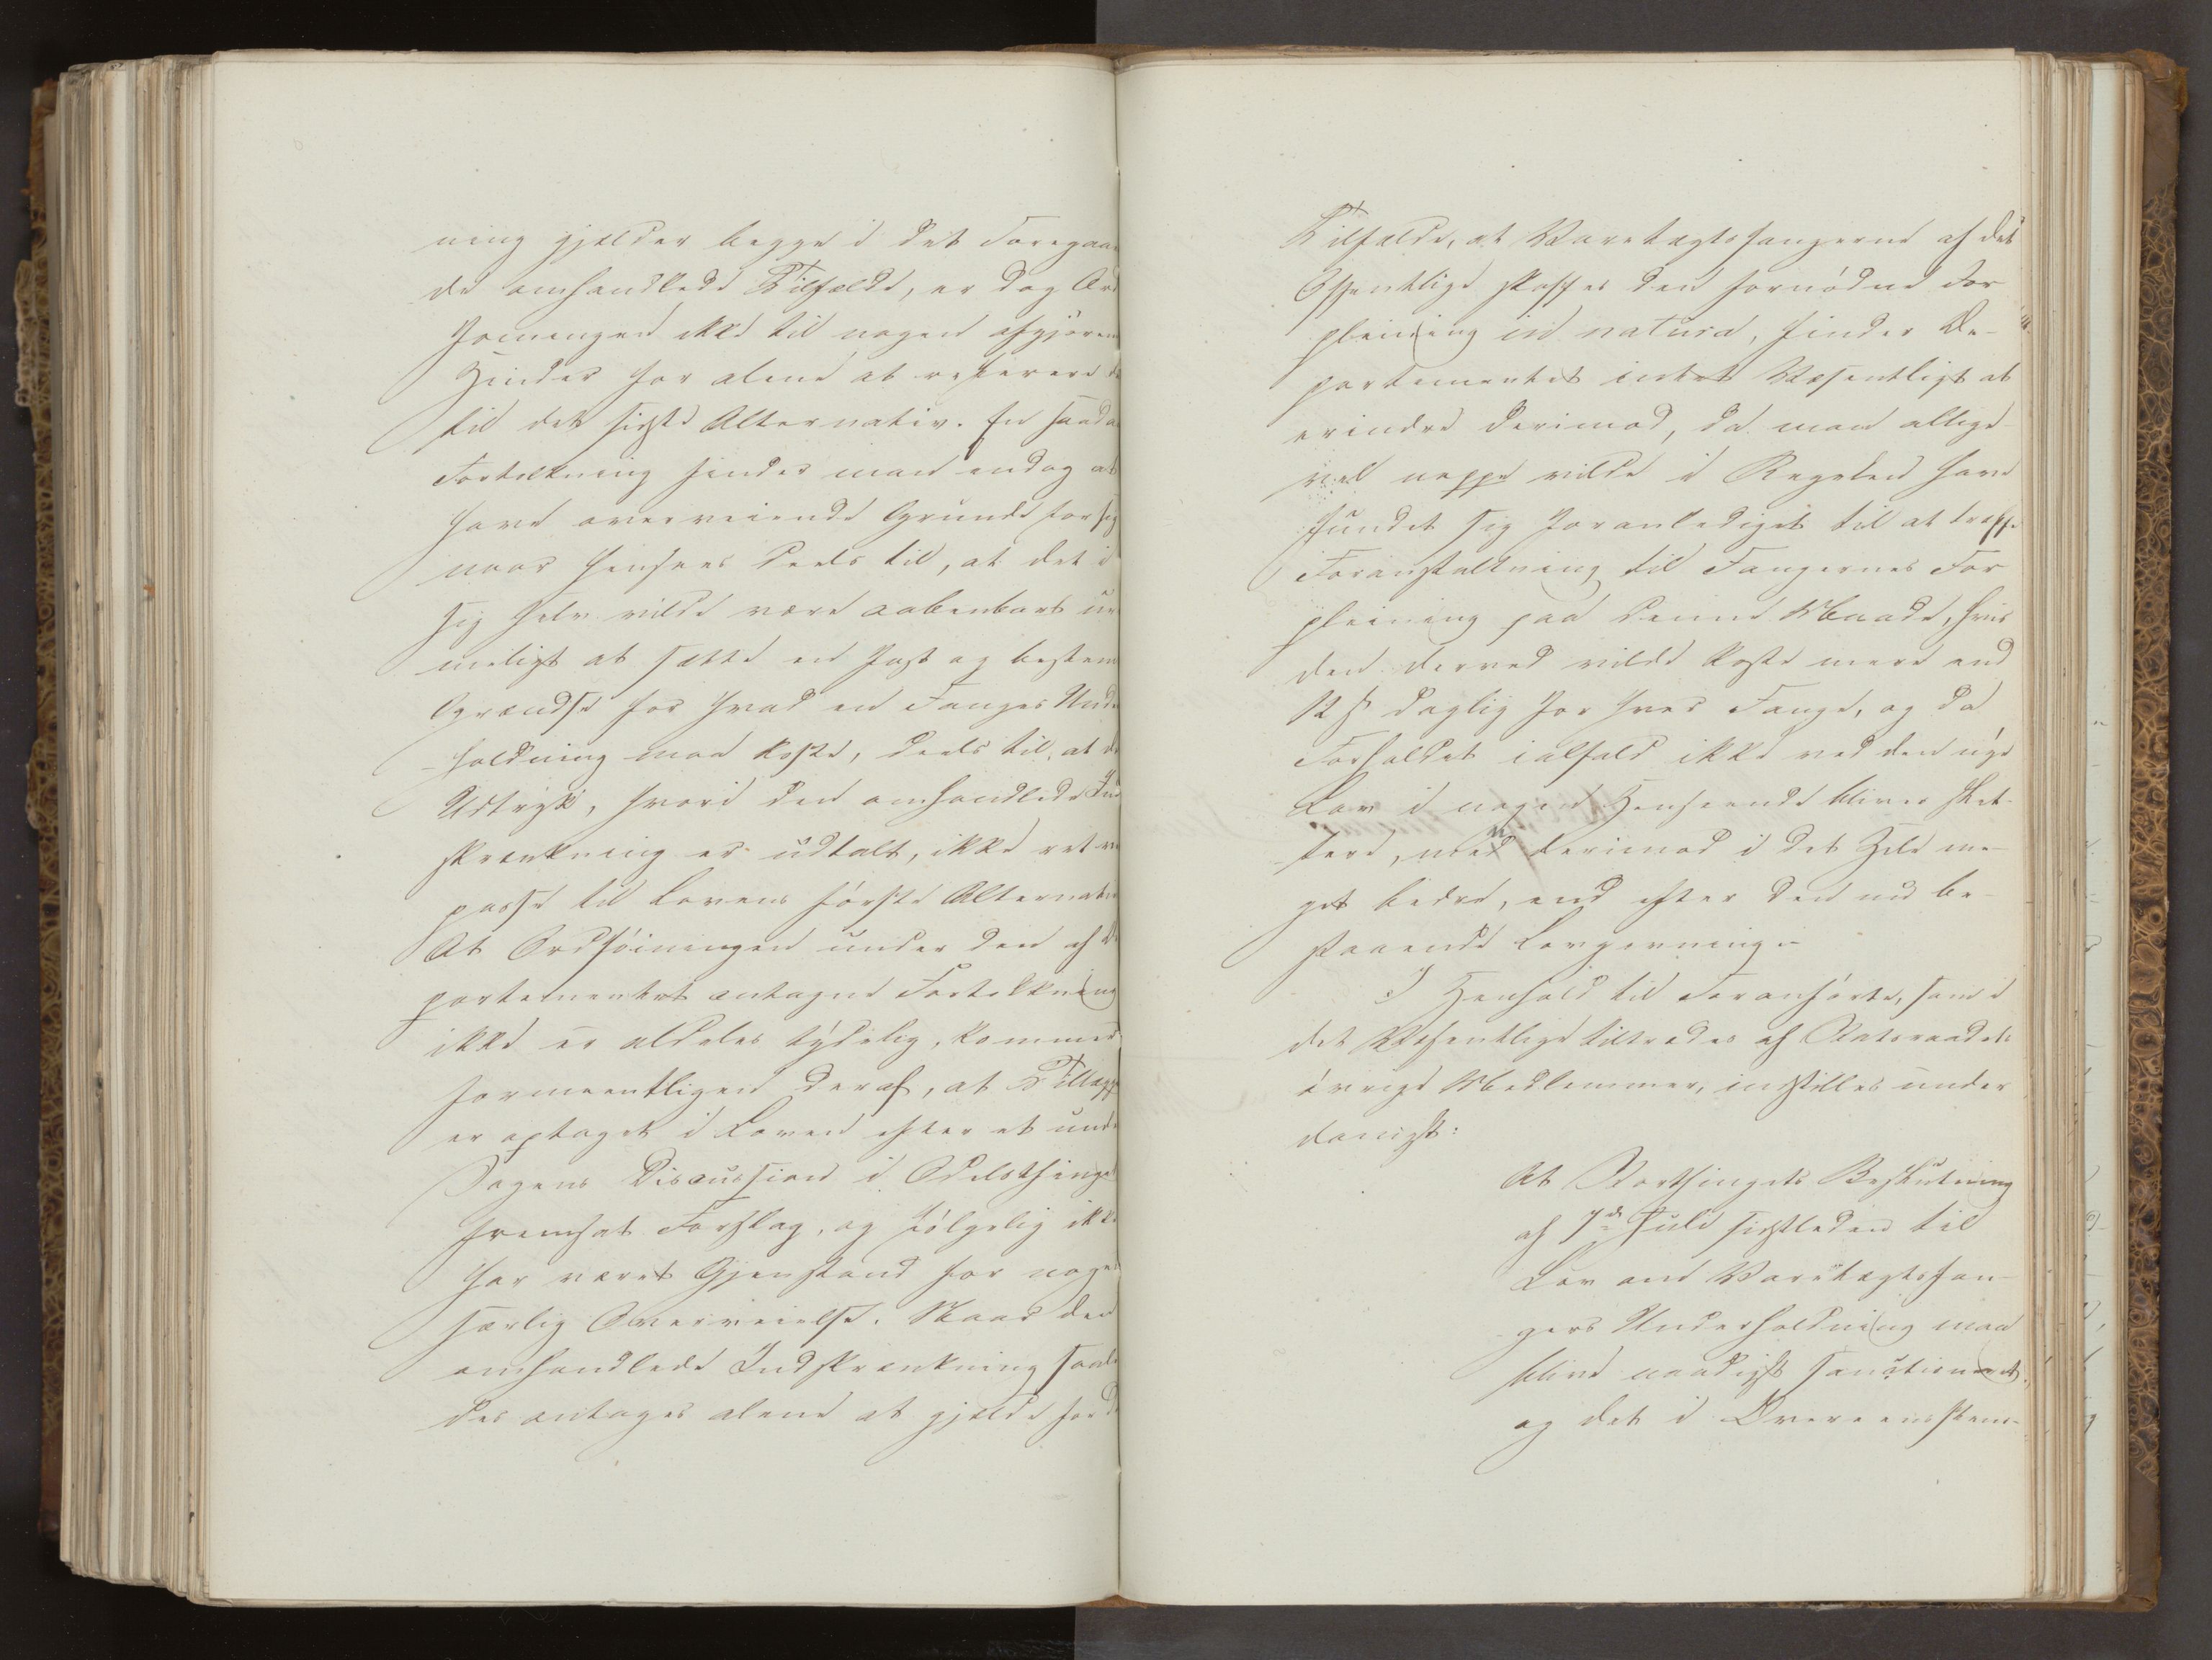 ning gjælder begge i det Foregaaen
de omhandlede Tilfælde, er dog Ord
foiningen ikke til nogen afgjøren
Hinder for alene at referere de
til det sidste Alternativ. En saada
Fortolkning finder man endog at
have overveiende Grunde for sig
naar hensees deels til, at det i
sig selv vilde være aabenbart uri
meligt at sætte en fast og bestem
Grændse for hvad en Fanges Unde
holdning maa koste, deels til, at de
Udtryk, hvori den omhandlede Ind
skrænkning er udtalt, ikke ret ve
passe til Lovens første Alternativ
At Ordføiningen under den af De
partementet antagne Fortolkning
ikke er aldeles tydelig, kommer
formeentligen deraf, at Tillægge
er optaget i Loven efter et unde
Sagens Discussion i Odelsthinget
fremsat Forslag, og følgelig ikke
har været Gjenstand for nogen
særlig Overveielse. Naar den
omhandlede Indskrænkning saale
des antages alene at gjælde for de
Tilfælde, at Varetægtsfangerne af det
Offentlige skaffes den fornødne For
pleining in natura, finder De-
partementet intet Væsentligt at
erindre derimod, da man allige-
vel neppe vilde i Regelen have
fundet sig foranlediget til at træffe
Foranstaltning til Fangernes For
pleining paa denne Maade, hvis
den derved vilde koste mere end
12 ß daglig for hver Fange, og da
Forholdet ialfald ikke ved den nye
Lov i nogen Henseende bliver slet-
tere, men derimod i det Hele me-
get bedre, end efter den nu be-
staaende Lovgivning.
I Henhold til Foranførte, som i
det Væsentlige tiltrædes af Statsraadets
øvrige Medlemmer, indstilles under
danigst:
At Storthingets Beslutning
af 7de Juli sidstleden til
Lov om Varetægtsfan-
gers Underholdning maa
blive naadigst sanctioneret,
og det i Overeensstem-